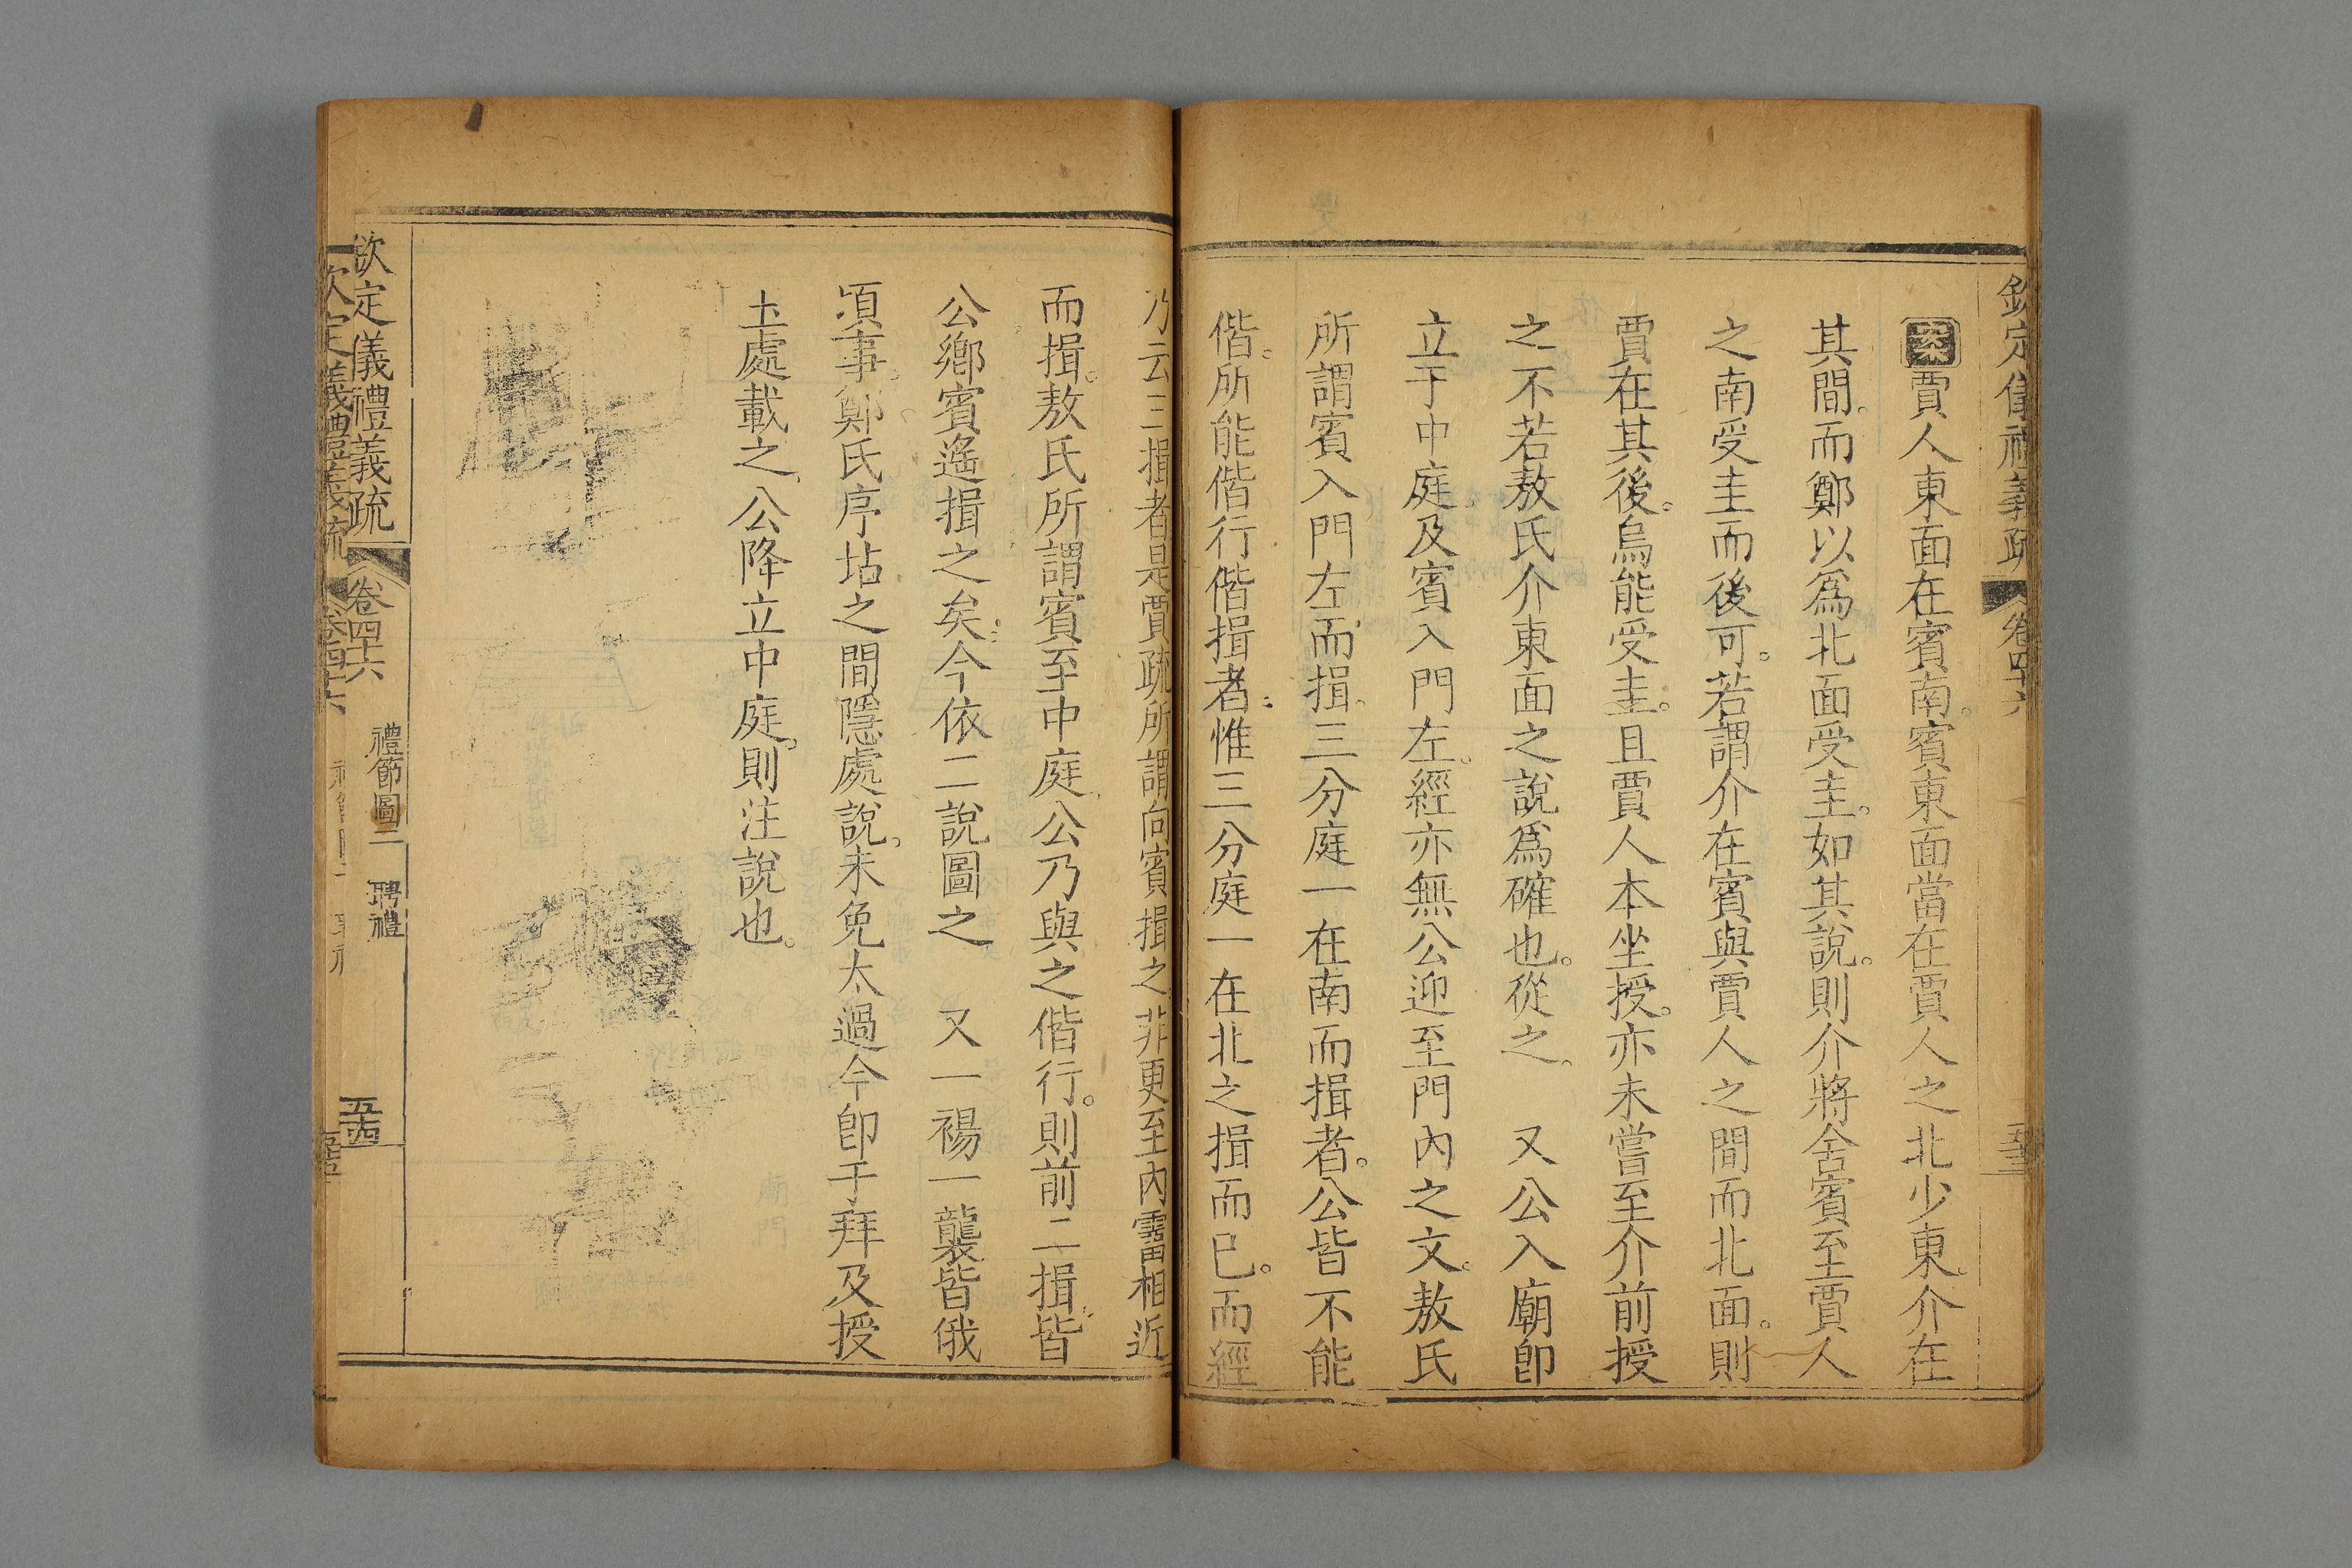 欽定儀禮義疏 卷四十六 五十三
案賈人東面在賓南。賓東面當在賈人之北少東。介在
其間。而鄭以爲北面受圭。如其說。則介將舍賓至賈人
之南受圭而後可。若謂介在賓與賈人之間而北面。則
賈在其後。烏能受圭。且賈人本坐授。亦未嘗至介前授
之不若敖氏介東面之說爲確也。從之。 又公入廟卽
立于中庭及賓入門左。經亦無公迎至門內之文。敖氏
所謂賓入門左而揖。三分庭一在南而揖者。公皆不能
偕。所能偕行偕揖者。惟三分庭一在北之揖而已。而經
乃云三揖者是賈疏所謂向賓揖之非更至內霤相近
而揖。敖氏所謂賓至中庭。公乃與之偕行。則前二揖。皆
公鄉賓遙揖之矣。今依二說圖之 又一裼一襲皆俄
頃事。鄭氏序坫之間隱處說。未免太過今卽于拜及授
玉處載之。公降立中庭。則注說也。
欽定儀禮義疏 卷四十六 禮節圖二 聘禮 五十四